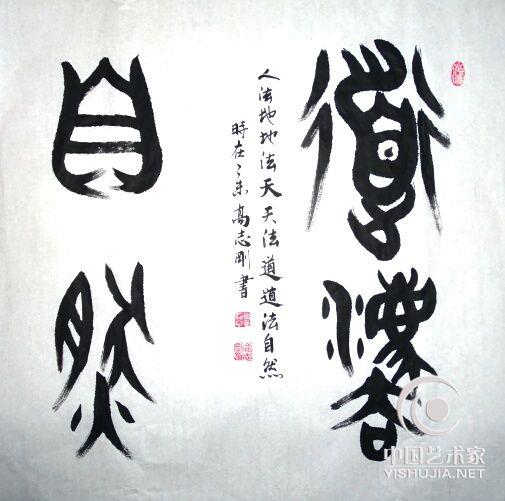 道灋
人法地地法天天法道道法自然
時在乙未高志剛書
自然
中国艺术家
YISHUJIA.NET